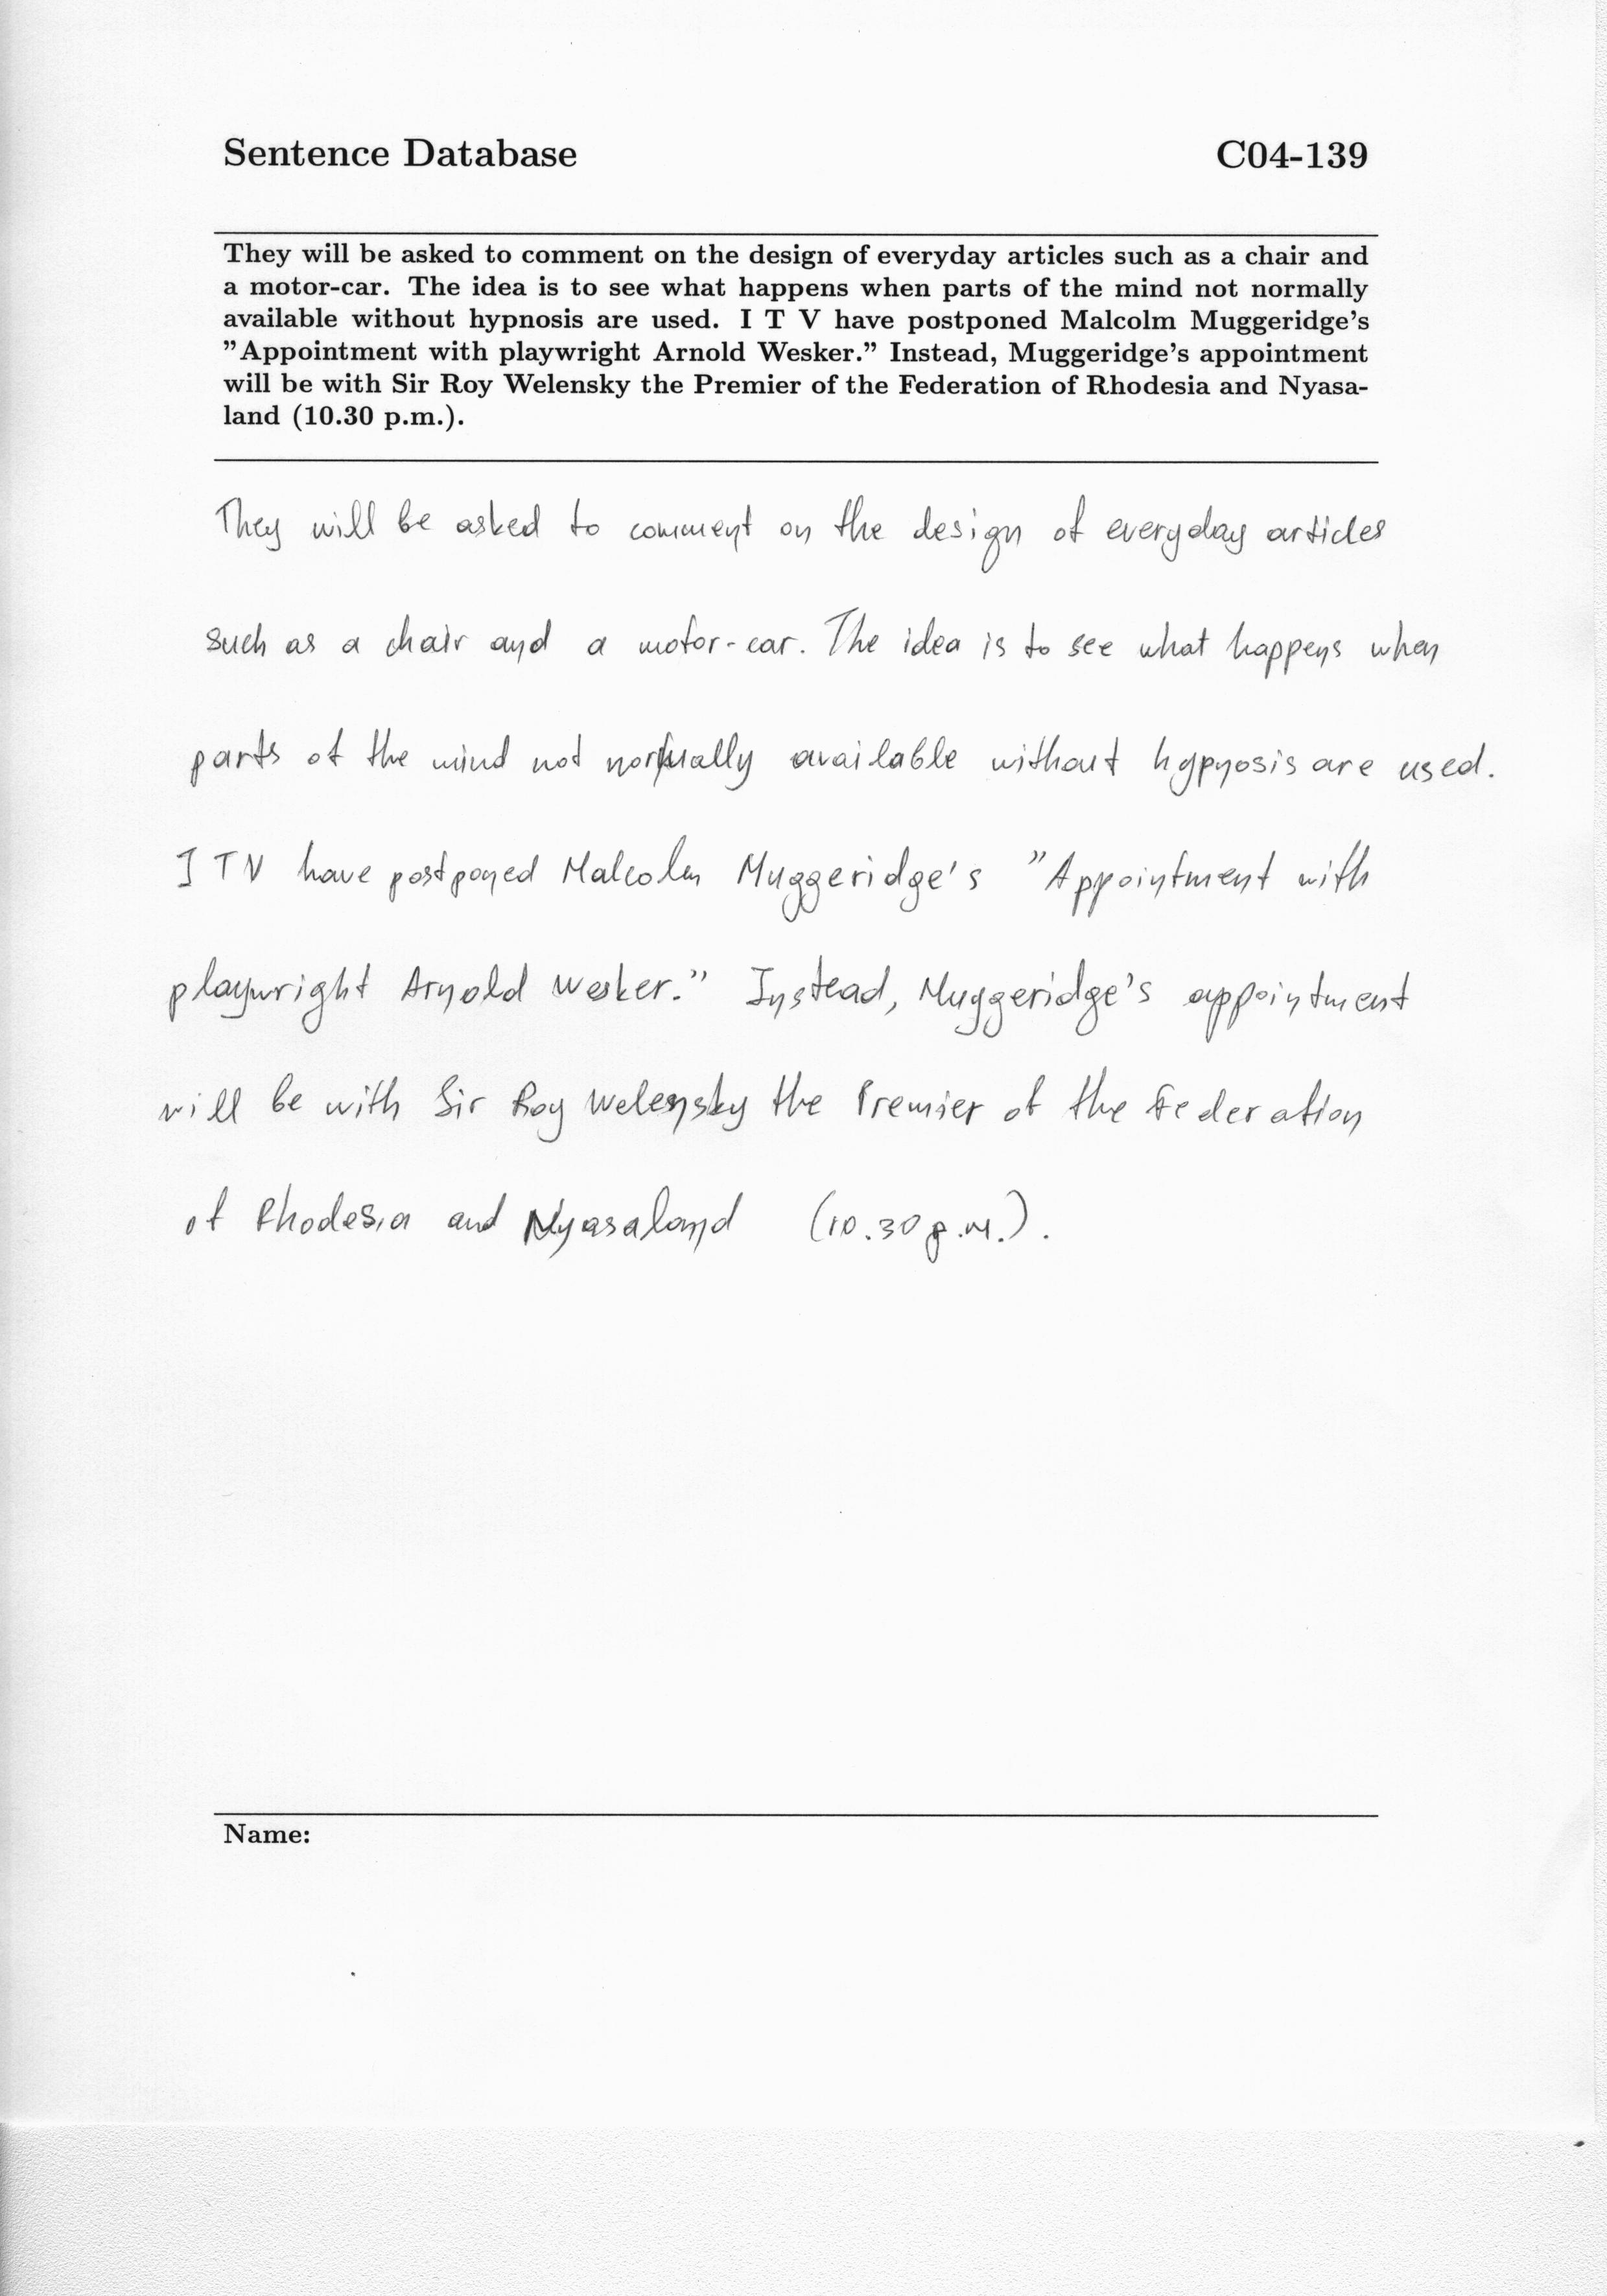 Sentence Database C04-139
They will be asked to comment on the design of everyday articles such as a chair and
a motor-car. The idea is to see what happens when parts of the mind not normally
available without hypnosis are used. I T V have postponed Malcolm Muggeridge's
"Appointment with playwright Arnold Wesker." Instead, Muggeridge's appointment
will be with Sir Roy Welensky the Premier of the Federation of Rhodesia and Nyasa-
land (10.30 p.m.).
They will be asked to comment on the design of everyday articles
such as a chair and a motor-car. The idea is to see what happens when
parts of the mind not normally available without hypnosis are used.
I T V have postponed Malcolm Muggeridge's "Appointment with
playwright Arnold Wesker." Instead, Muggeridge's appointment
will be with Sir Roy Welensky the Premier of the Federation
of Rhodesia and Nyasaland (10.30 p.m.).
Name: